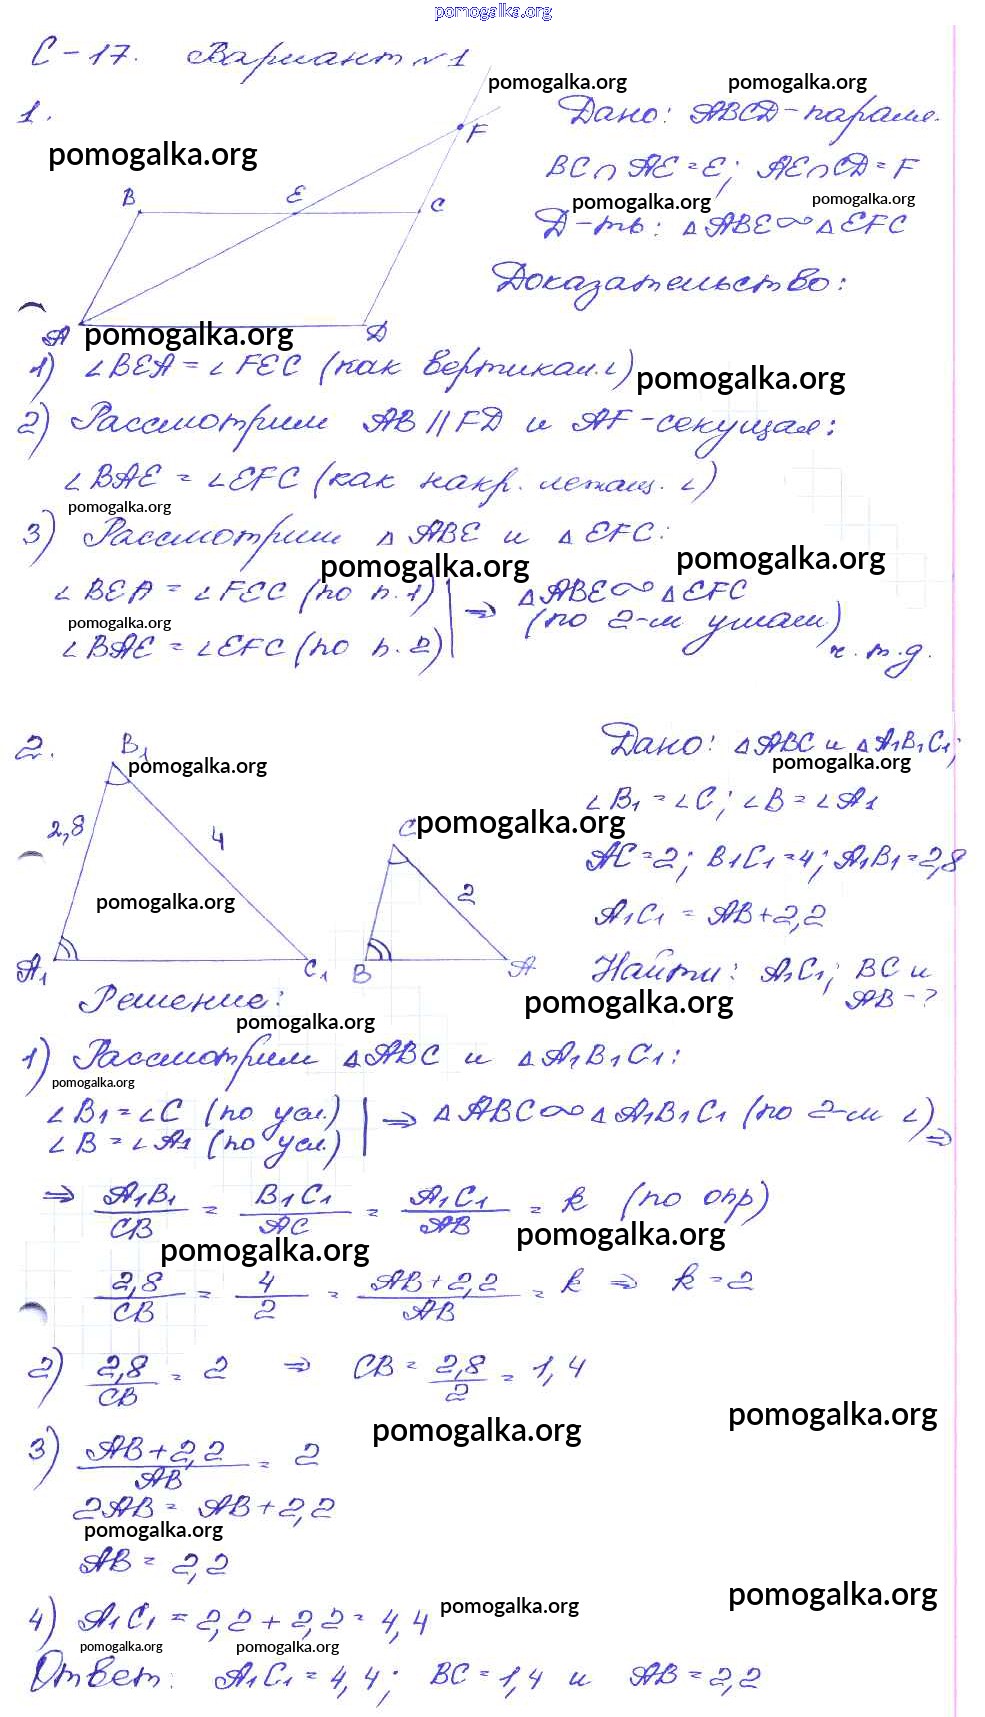 pomogalka.org
С-17. Вариант №1
pomogalka.org pomogalka.org
1.
F
Дано: ABCD-паралл.
pomogalka.org
BC∩AE=E; AE∩CD=F
B E C
pomogalka.org pomogalka.org
Д-ть: △ABE∾△EFC
Доказательство:
A pomogalka.org D
1) ∠BEA=∠FEC (как вертикал.∠)
pomogalka.org
2) Рассмотрим AB||FD и AF-секущая:
∠BAE=∠EFC (как накр. лежащ. ∠)
pomogalka.org
3) Рассмотрим △ABE и △EFC:
pomogalka.org pomogalka.org
∠BEA=∠FEC (по п.1) | ⇒ △ABE∾△EFC
pomogalka.org
∠BAE=∠EFC (по п.2) | (по 2-м углам)
ч.т.д.
2. B1
Дано: △ABC и △A1B1C1;
pomogalka.org pomogalka.org
∠B1=∠C; ∠B=∠A1
2,8 4 C pomogalka.org
AC=2; B1C1=4; A1B1=2,8
pomogalka.org 2
A1C1=AB+2,2
A1 C1 B A
Найти: A1C1; BC и
AB-?
Решение:
pomogalka.org
pomogalka.org
1) Рассмотрим △ABC и △A1B1C1:
pomogalka.org
∠B1=∠C (по усл.) | ⇒ △ABC∾△A1B1C1 (по 2-м ∠) ⇒
∠B=∠A1 (по усл.) |
⇒ A1B1/CB = B1C1/AC = A1C1/AB = k (по опр)
pomogalka.org pomogalka.org
2,8/CB = 4/2 = AB+2,2/AB = k ⇒ k=2
2) 2,8/CB = 2 ⇒ CB = 2,8/2 = 1,4
pomogalka.org pomogalka.org
3) AB+2,2/AB = 2
2AB = AB+2,2
pomogalka.org
AB = 2,2
pomogalka.org
4) A1C1 = 2,2+2,2=4,4
pomogalka.org
pomogalka.org pomogalka.org
Ответ: A1C1=4,4; BC=1,4 и AB=2,2